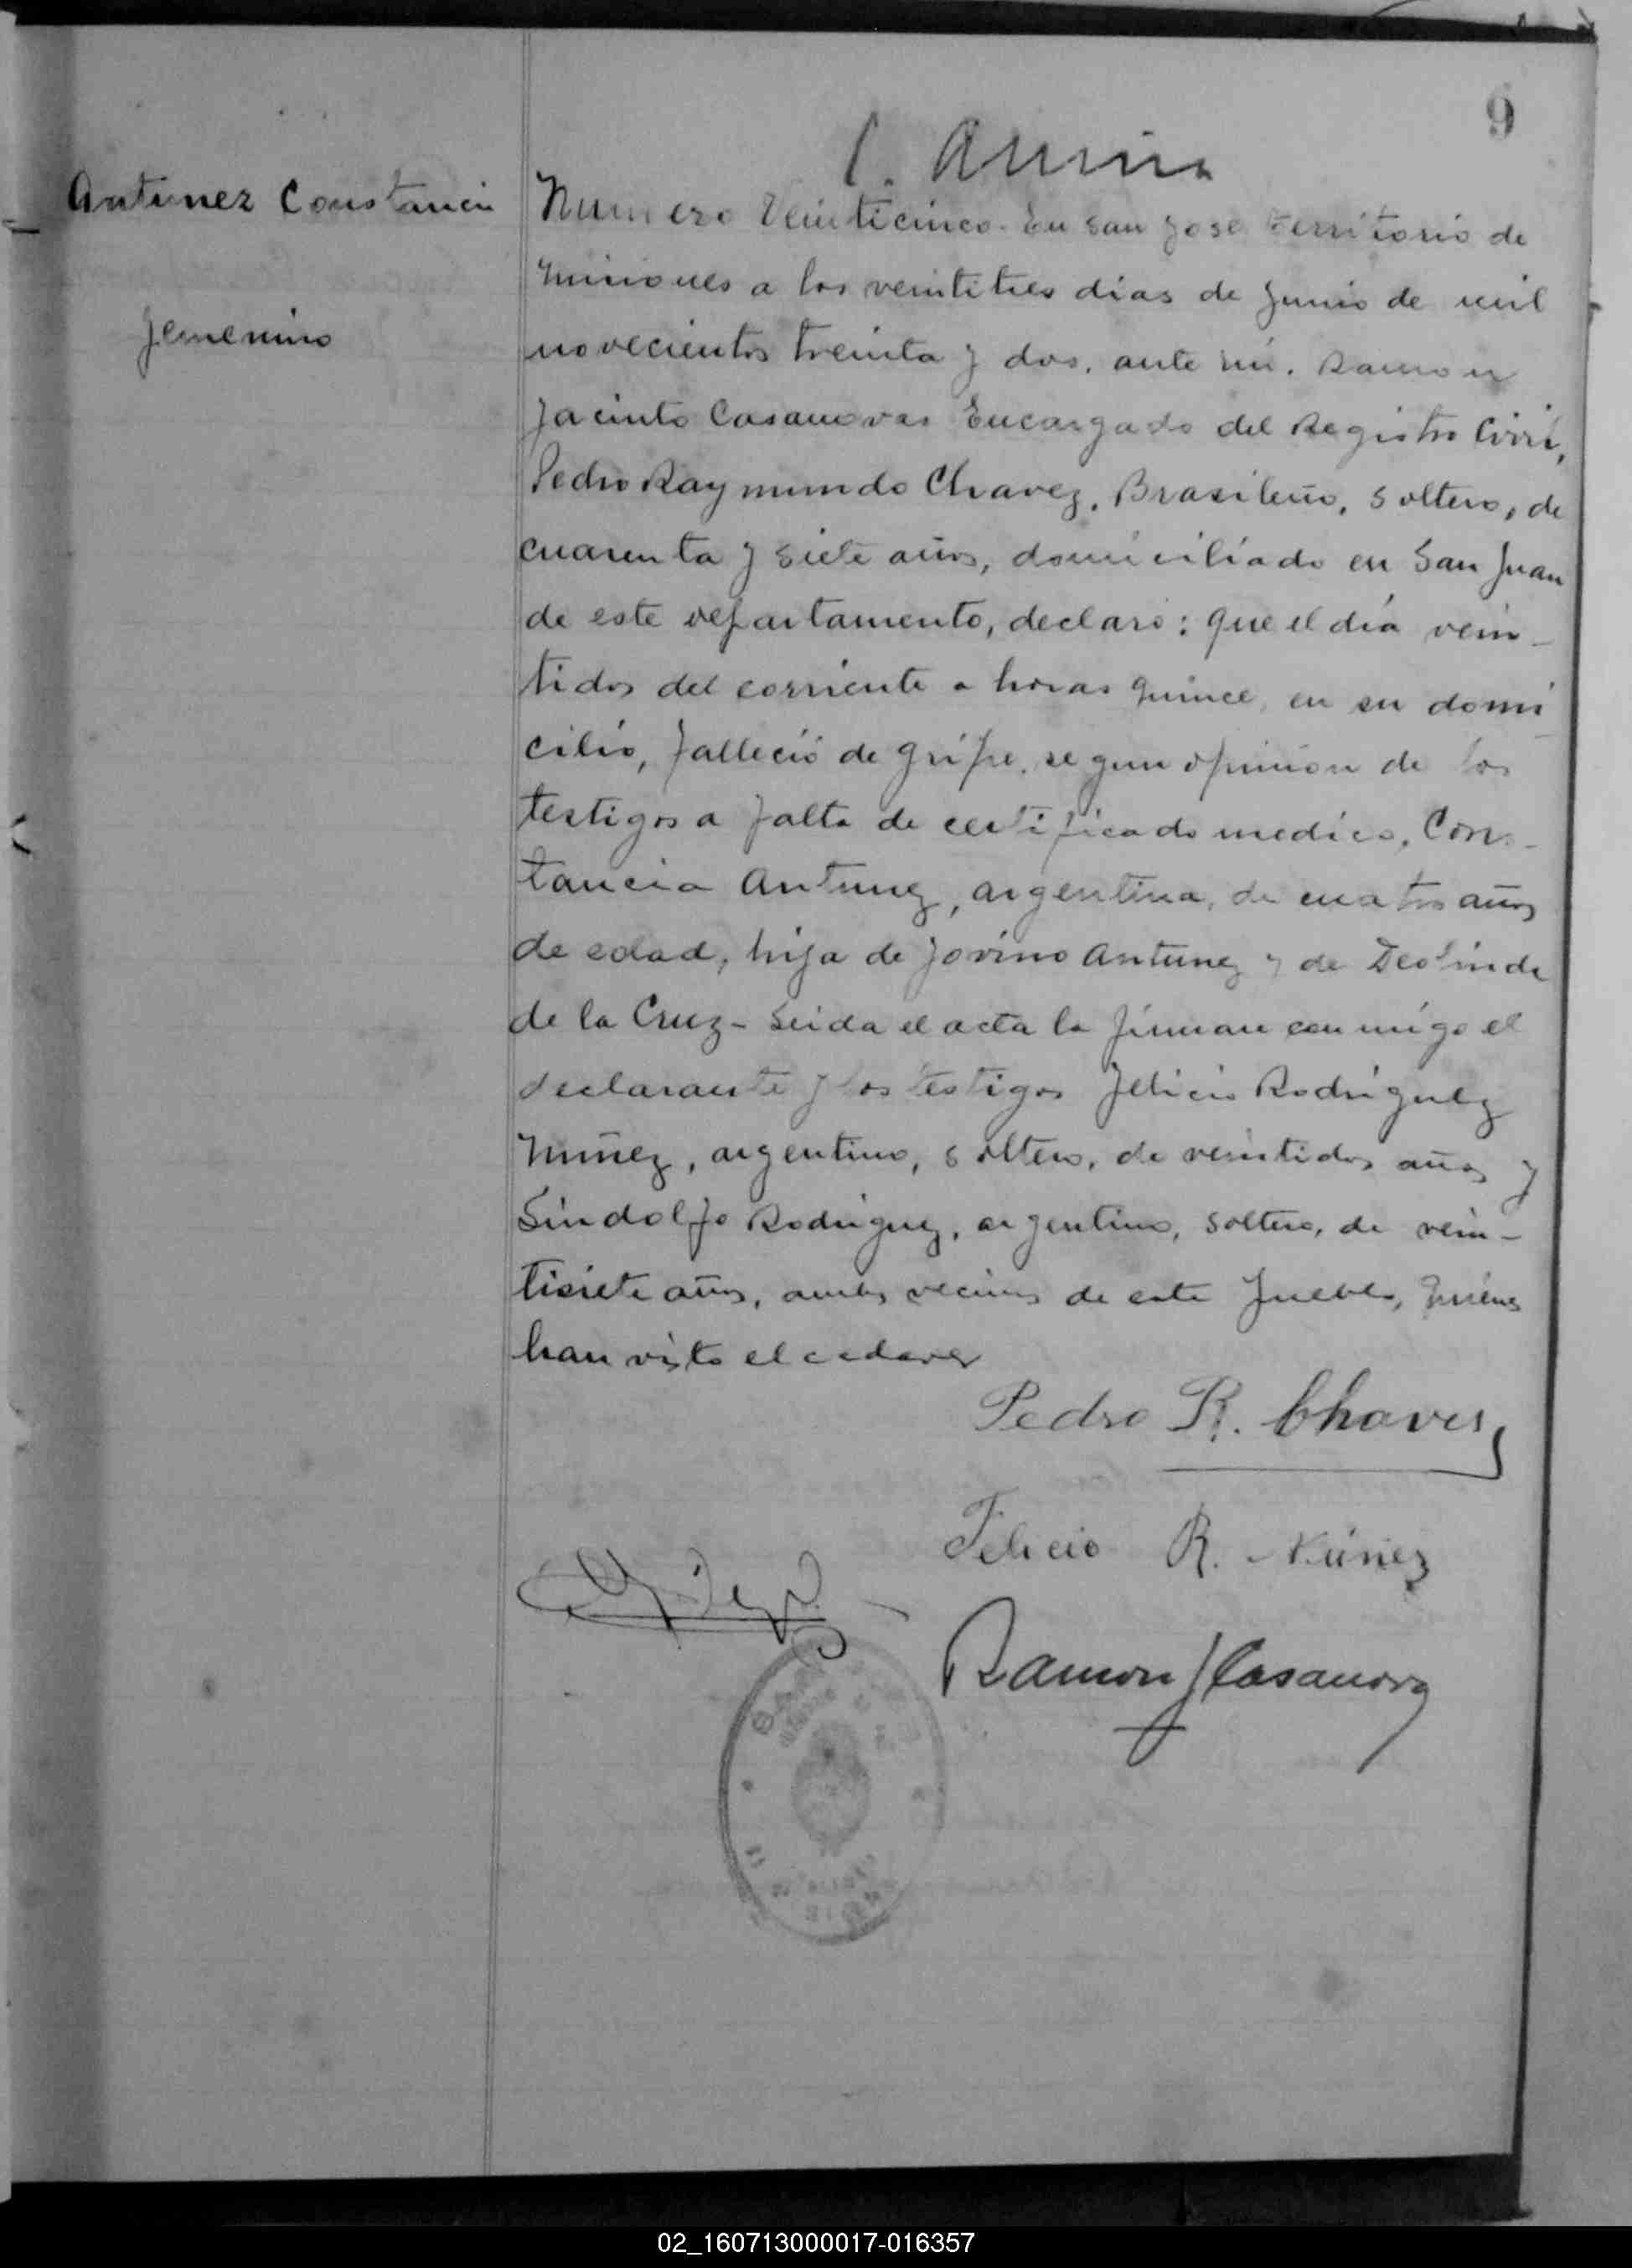 9
Antunez Constancia
femenino
Numero Veinticinco. En San José Territorio de
Misiones a los veintitres dias de Junio de mil
novecientos treinta y dos, ante mi, Ramon
Jacinto Casanovas Encargado del Registro Civil,
Pedro Raymundo Chavez, Brasileño, soltero, de
cuarenta y siete años, domiciliado en San Juan
de este departamento, declaró: Que el día vein-
tidos del corriente a horas quince, en su domi
cilio, falleció de gripe, segun opinión de los
testigos a falta de certificado medico, Cons-
tancia Antunez, argentina, de cuatro años
de edad, hija de Jovino Antunez y de Deolinda
de la Cruz - Leida el acta la firman conmigo el
declarante y los testigos Felicio Rodriguez
Nuñez, argentino, soltero, de veintidos años y
Lindolfo Rodriguez, argentino, soltero, de vein-
tisiete años, ambos vecinos de este pueblo, quienes
han visto el cadaver
Pedro R. Chaves
Felicio R. Núñez
Ramon J Casanova
02_160713000017-016357